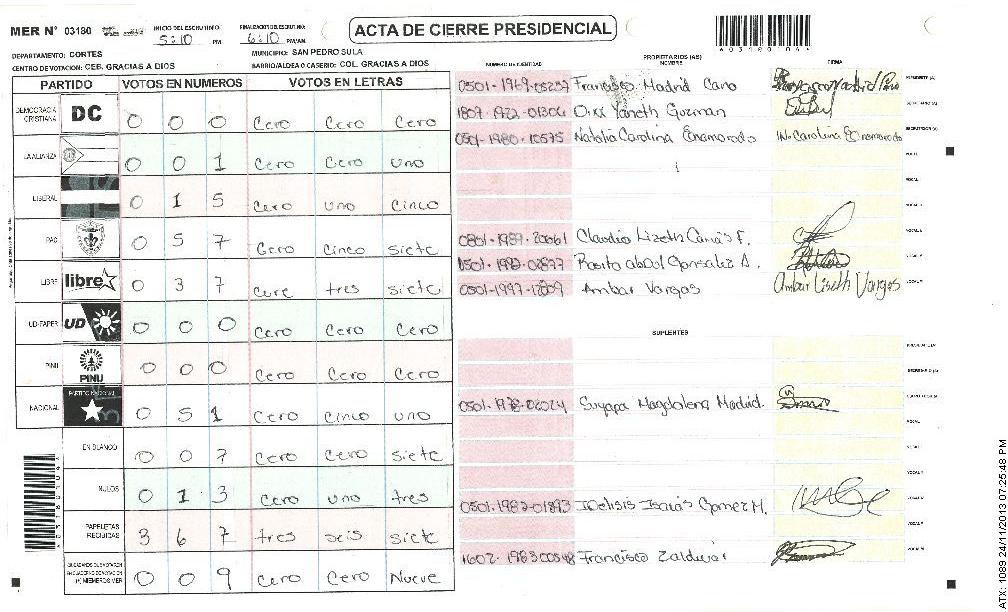 MER N° 03180
INICIO DEL ESCRUTINIO: 5:10 PM
FINALIZACION DEL ESCRUTINIO: 6:10 PM/AM
ACTA DE CIERRE PRESIDENCIAL
DEPARTAMENTO: CORTES
MUNICIPIO: SAN PEDRO SULA
CENTRO DE VOTACION: CEB. GRACIAS A DIOS
BARRIO/ALDEA O CASERIO: COL. GRACIAS A DIOS
PARTIDO VOTOS EN NUMEROS VOTOS EN LETRAS
DEMOCRACIA CRISTIANA DC 0 0 0 Cero Cero Cero
LA ALIANZA 0 0 1 Cero Cero uno
LIBERAL 0 1 5 Cero uno Cinco
PAC 0 5 7 Cero Cinco Siete
LIBRE libre 0 3 7 Cero tres Siete
UD-FAPER UD 0 0 0 Cero Cero Cero
PINU PINU 0 0 0 Cero Cero Cero
NACIONAL PARTIDO NACIONAL 0 5 1 Cero Cinco uno
EN BLANCO 0 0 7 Cero Cero Siete
NULOS 0 1 3 Cero uno tres
PAPELETAS RECIBIDAS 3 6 7 tres seis siete
(+) MIEMBROS MER 0 0 9 Cero Cero Nueve
NUMERO DE IDENTIDAD
PROPIETARIOS (AS)
NOMBRE
FIRMA
0501-1969-05237 Francisco Madrid Cano
PRESIDENTE (A)
1807-1972-01306 Yaneth Guzman
SECRETARIO (A)
0501-1980-10575 Natalia Carolina Enamorado Carolina Enamorado
ESCRUTADOR (A)
VOCAL
0801-1989-20061 Claudia Lizeth
0501-1982-02877 Gonzalez A.
0501-1997-12809 Ambar Vargas Ambar Liseth Vargas
SUPLENTES
0501-1978-02024 Suyapa Magdalena Madrid.
0501-1982-01893 Isaias Gomez M.
1602-1983 00548 Francisco Zaldivar
A03180 04
ATX: 1089 24/11/2013 07:25:48 PM